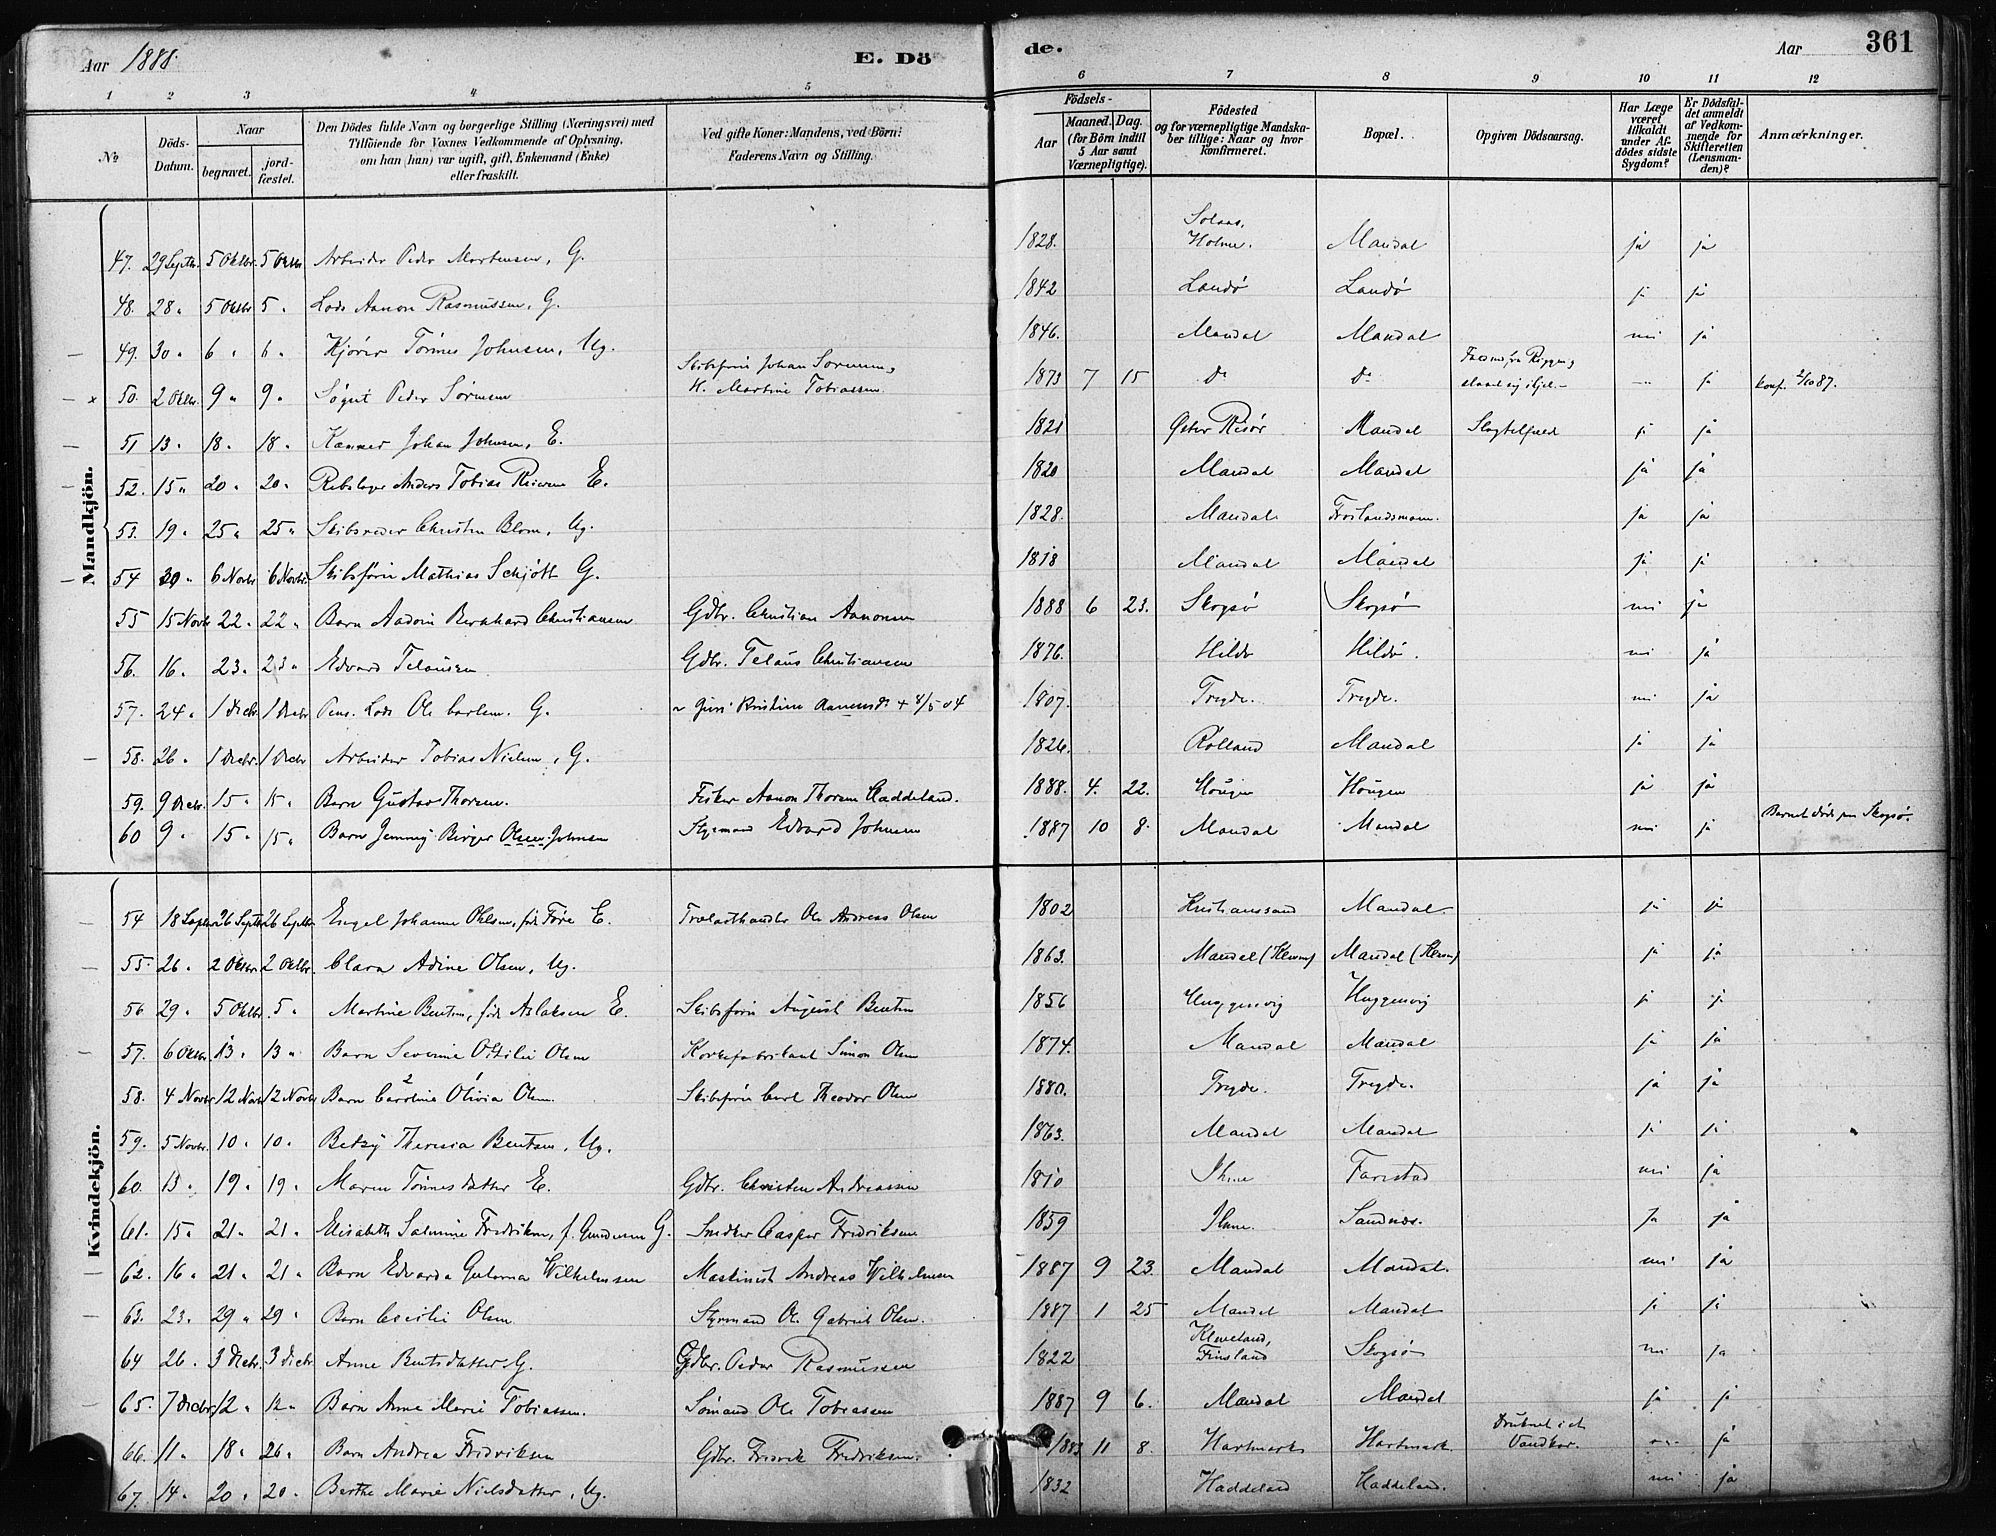 Aar 1888. E. Dö de. Aar 361
1 2 3 4 5 6 7 8 9 10 11 12
No
Döds-Datum.
Naar
begravet.
jordfæstet.
Den Dödes fulde Navn og borgerlige Stilling (Næringsvei) med
Tilföiende for Voxnes Vedkommende af Oplysning,
om han (hun) var ugift, gift, Enkemand (Enke)
eller fraskilt.
Ved gifte Koner: Mandens, ved Börn:
Faderens Navn og Stilling.
Födsels-
Aar
Maaned. Dag.
(for Börn indtil
5 Aar samt
Værnepligtige).
Födested
og for værnepligtige Mandskaber tillige: Naar og hvor
konfirmeret.
Bopæl.
Opgiven Dödsaarsag.
Har Læge
været
tilkaldt
under Afdödes sidste
Sygdom?
Er Dödsfaldet anmeldt
af Vedkommende for
Skifteretten
(Lensmanden)?
Anmærkninger.
Mandkjön.
47. 29 Septbr. 5 Oktbr. 5 Oktbr Arbeider Peder Mortensen, G. 1828. Holme. Mandal ja ja
48. 28 " 5 Oktbr 5 " Lods Aanon Rasmussen, G. 1842 Landö Landö ja ja
49. 30 " 6 " 6 " Kjörer Tönnes Johnsen, Ug. 1846. Mandal Mandal nei ja
50. 2 Oktbr. 9 " 9 " Peder Sörensen Skibsförer Johan Sörensen, H. Martine Tobiassen 1873 7 15 Do Do ja konf. 2/10 87.
51 13 " 18 " 18 " Johan Johnsen, E. 1821 Öster Risör Mandal ja ja
52. 15 " 20 " 20 " Rebslager Anders Tobias E. 1820 Mandal Mandal ja ja
53. 19 " 25 " 25 " Skibsreder Christen Blom, Ug. 1828. Mandal ja ja
54 30 " 6 Novbr 6 Novbr. Skibsförer Mathias Schjött G. 1818 Mandal Mandal ja ja
55 15 Novbr 22 " 22 " Barn Bernhard Christiansen Gdbr. Christian Aanonsen 1888 6 23. Skogsö Skogsö nei ja
56. 16 " 23 " 23 " Edvard Telausen Gdbr. Telaus Christiansen 1876. Hildö Hildö. nei ja
57. 24 " 1 Decbr 1 Decbr Pens. Lods Ole G. 1807. Tregde. Tregde. nei ja
58. 26 " 1 Decbr. 1 Decbr Arbeider Tobias Nielsen, G. 1826. Mandal ja ja
59. 9 Decbr. 15 " 15 " Barn Gustav Thorsen. Fisker Aanon Thorsen Haddeland. 1888. 4. 22. Hougen Hougen ja ja
60 9 " 15 " 15 " Barn Jemmy Birger Olsen Johnsen Styrmand Edvard Johnsen 1887 10 8. Mandal Mandal nei ja Barnet döde paa Skogsö.
Kvindekjön.
54 18 Septbr 26 Septbr 26 Septbr. Engel Johanne Ohlsen, föd E. Trælasthandler Ole Andreas Olsen 1802 Kristianssand Mandal. ja ja
55. 26 " 2 Oktbr 2 Oktbr. Clara Adine Olsen, Ug. 1863. Mandal (Kleven) Mandal (Kleven) ja ja
56 29 " 5 Oktbr. 5 " Martine Bentsen, föd Aslaksen E. Skibsförer August Bentsen 1856 ja ja
57. 6 Oktbr. 13 " 13 " Barn Severine Ottilie Olsen Korkefabrikant Simon Olsen 1874. Mandal Mandal ja ja
58. 4 Novbr 12 Novbr 12 Novbr Barn Caroline Olivia Olsen. Skibsförer Carl Theodor Olsen 1880. Tregde. Tregde. ja ja
59. 5 Novbr. 10 " 10 " Betzy Theresia Bentsen, Ug. 1863. Mandal Mandal ja ja
60. 13 " 19 " 19 " Maren Tönnesdatter E. Gdbr. Christen Andreassen 1810 Ihme Farestad nei ja
61. 15 " 21 " 21 " Elisabeth Salmine Fredriksen, f. Gundersen G. Snedker Casper Fredriksen 1859 Ihme. Sandnæs. ja ja
62. 16 " 21 " 21 " Barn Edvarda Wilhelmsen Maskinist Andreas Wilhelmsen 1887 9 23. Mandal Mandal. nei ja
63. 23 " 29 " 29 " Barn Cecilie Olsen Styrmand Ole Gabriel Olsen. 1887 1 25 Mandal Mandal ja ja
64 26 " 3 Decbr. 3 Decbr. Anne Bentsdatter G. Gdbr. Peder Rasmussen 1822 Kleveland, Finsland Skogsö nei ja
65. 7 Decbr. 12 " 12 " Barn Anne Marie Tobiassen. Sömand Ole Tobiassen 1887 9 6. Mandal Mandal ja ja
66. 11 " 18 " 26 " Barn Andrea Fredriksen Gdbr. Fredrik Fredriksen. 1883 11 8. Hartmark Hartmark. Druknet i et Vandkar. ja
67. 14 " 20 " 20 " Berthe Marie Nielsdatter, Ug. 1832 Haddeland Haddeland. nei ja